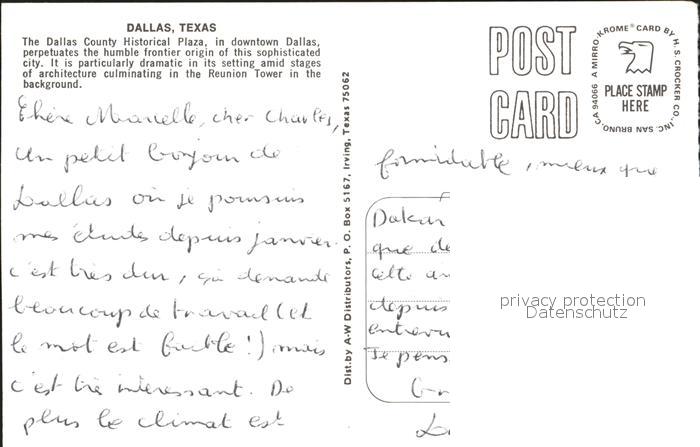 DALLAS, TEXAS
The Dallas County Historical Plaza, in downtown Dallas,
perpetuates the humble frontier origin of this sophisticated
city. It is particularly dramatic in its setting amid stages
of architecture culminating in the Reunion Tower in the
background.
Chère Marielle, cher Charles,
Un petit bonjour de
Dallas où je poursuis
mes études depuis janvier.
c'est très dur, ça demande
beaucoup de travail (et
le mot est faible!) mais
c'est très intéressant. De
plus le climat est
Dist.by A-W Distributors, P. O. Box 5167, Irving, Texas 75062
POST
CARD
A MIRRO-KROME® CARD BY H. S. CROCKER CO., INC. SAN BRUNO, CA 94066
PLACE STAMP
HERE
formidable, mieux que
Dakar
que de
cette an
depuis
entrevu
Je pens
privacy protection
Datenschutz